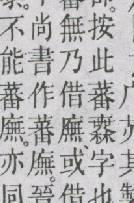 按此蕃橆字也
無乃借廡或借
尚書作蕃廡。晉
不能蕃廡。亦同